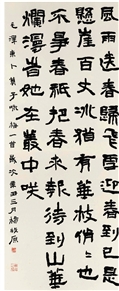 風雨送春歸飛雪迎春到已是
懸崖百丈冰猶有華枝俏俏也
不爭春祇把春來報待到山華
爛漫旹她在叢中咲
毛澤東卜算子咏梅一首歲次三月